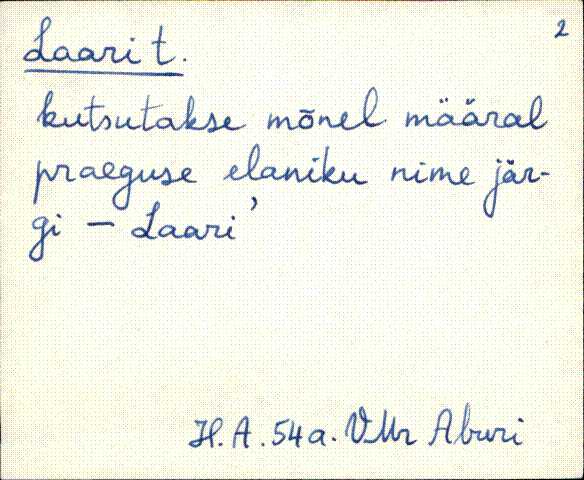 2
Laari t.
kutsutakse mõnel määral
praeguse elaniku nime jär-
gi - Laari'
H.A. 54a. VMr Aburi